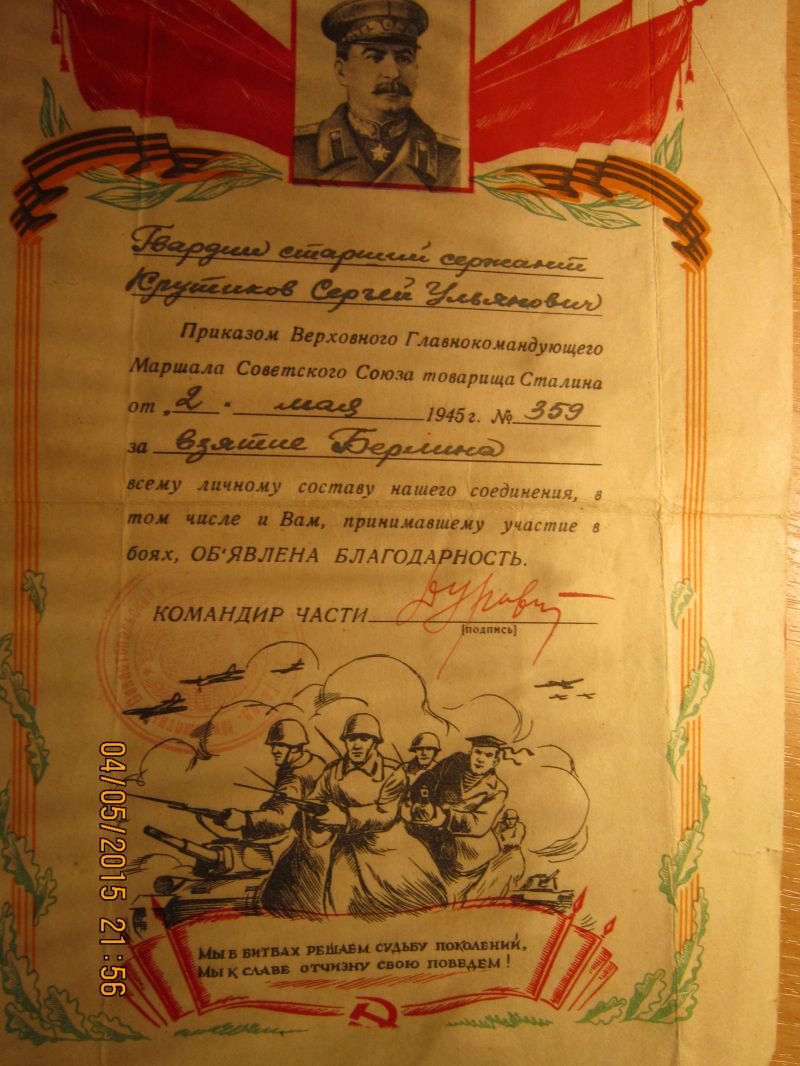 Гвардии старший сержант
Крутиков Сергей Ульянович
Приказом Верховного Главнокомандующего
Маршала Советского Союза товарища Сталина
от „2" мая 1945 г. № 359
за взятие Берлина
всему личному составу нашего соединения, в
том числе и Вам, принимавшему участие в
боях, ОБ'ЯВЛЕНА БЛАГОДАРНОСТЬ.
КОМАНДИР ЧАСТИ
[подпись]
МЫ В БИТВАХ РЕШАЕМ СУДЬБУ ПОКОЛЕНИЙ,
МЫ К СЛАВЕ ОТЧИЗНУ СВОЮ ПОВЕДЕМ!
04/05/2015 21:56